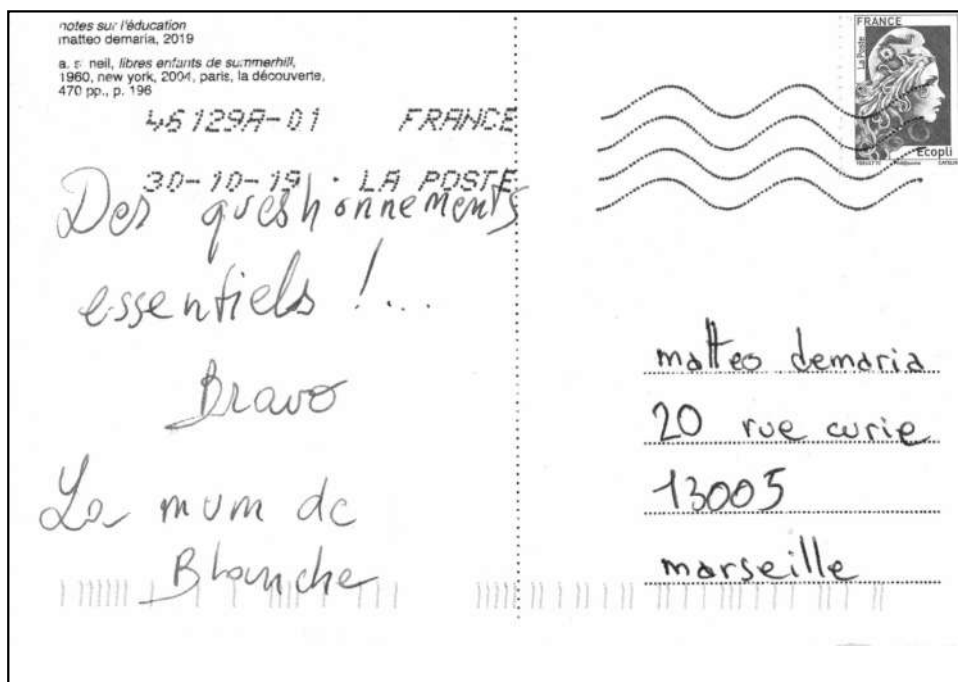 notes sur l'éducation
matteo demaria, 2019
a. s. neil, libres enfants de summerhill,
1960, new york, 2004, paris, la découverte,
470 pp., p. 196
46129A-01 FRANCE
30-10-19 · LA POSTE
Des questionnements
essentiels !...
Bravo
La mum de
Blanche
FRANCE
La Poste
Ecopli
matteo demaria
20 rue curie
13005
marseille